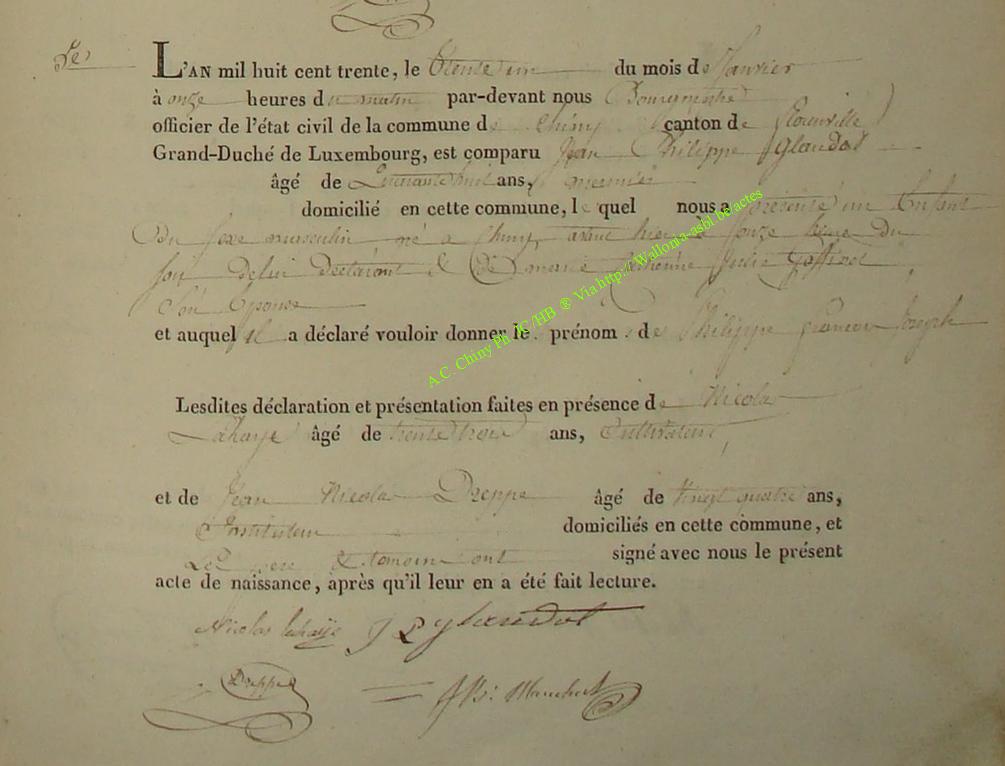 5e
L'AN mil huit cent trente, le trente un du mois de Janvier
à onze heures du matin par-devant nous Bourgmestre
officier de l'état civil de la commune de Chiny canton de
Grand-Duché de Luxembourg, est comparu Jean Philippe Glaudot
âgé de ans, meunier
domicilié en cette commune, le quel nous a présenté un Enfant
du sexe masculin, né a Chiny, avant hier à onze heure du
soir de lui déclarant & de marie Julie
Son Epouse
et auquel il a déclaré vouloir donner le prénom de Philippe Joseph
Lesdites déclaration et présentation faites en présence de Nicolas
Lahaye âgé de trente trois ans, Cultivateur,
et de Jean Nicolas Dreppe âgé de vingt quatre ans,
Instituteur domiciliés en cette commune, et
Les pere & temoins ont signé avec nous le présent
acte de naissance, après qu'il leur en a été fait lecture.
Nicolas Lahaye J P glaudot
Dreppe
A.C. Chiny Ph. JC /HB ® Via http://Wallonia-asbl.be/actes